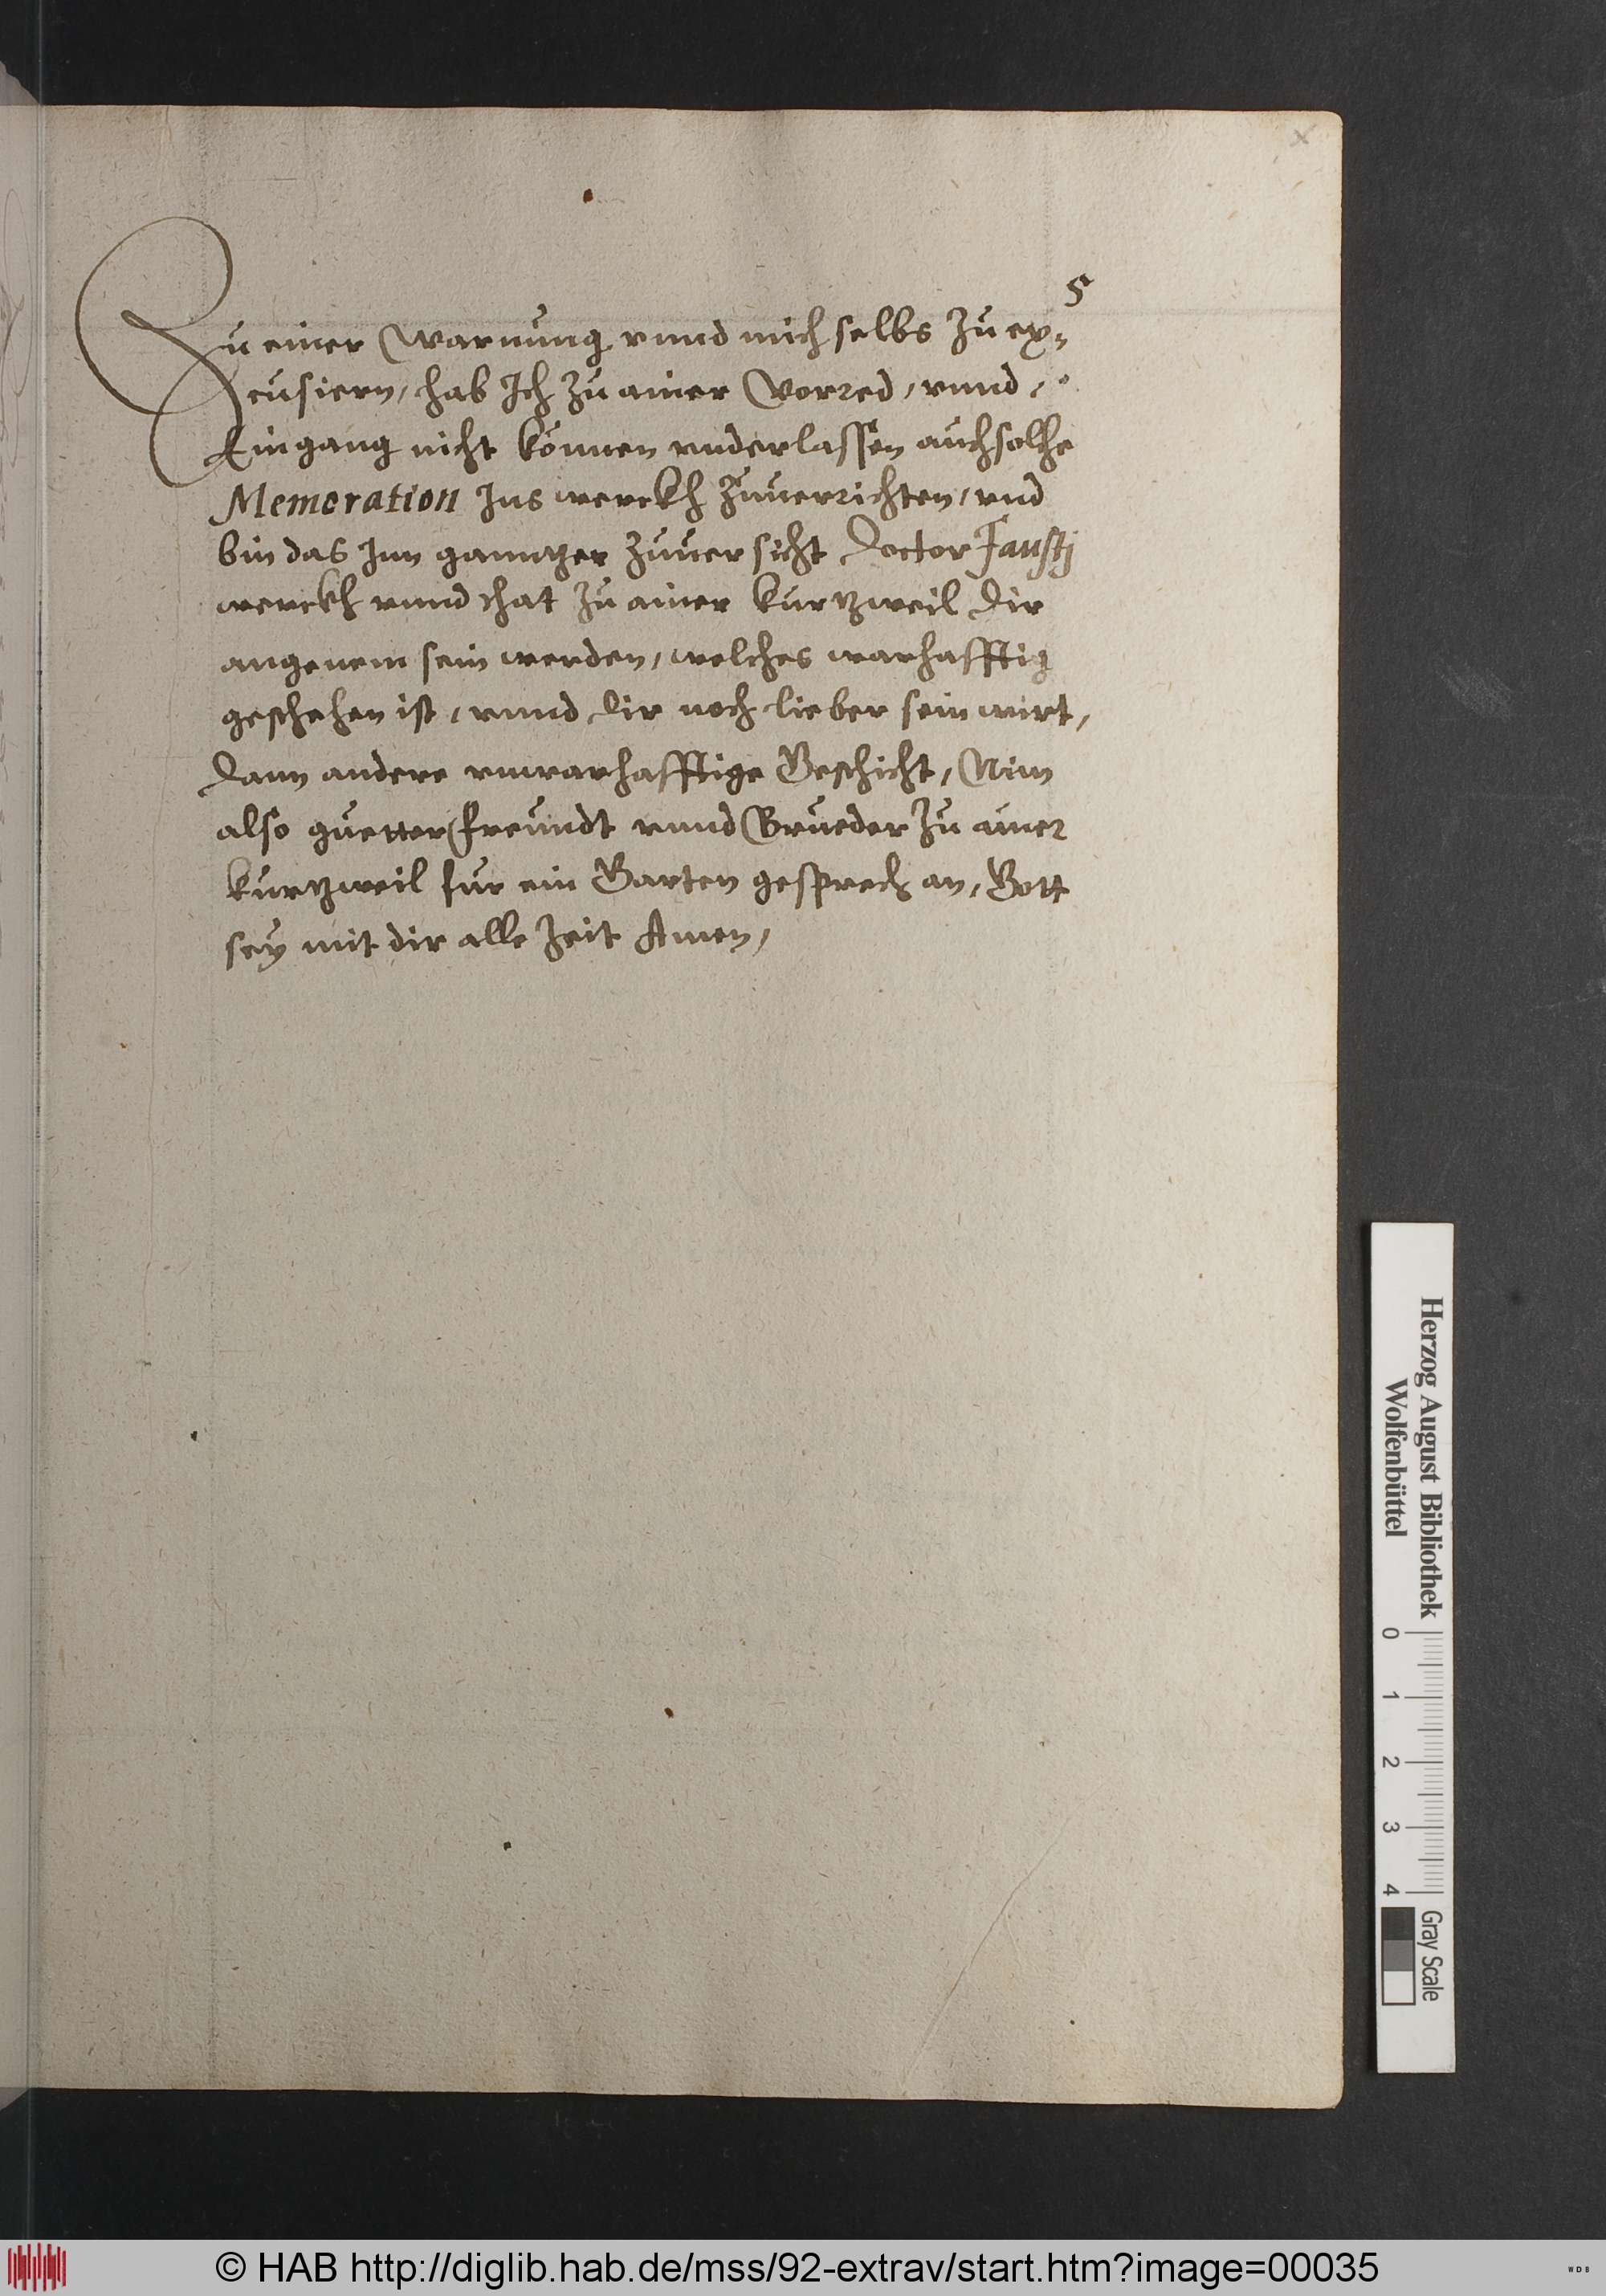 5
Zu einer Warnung vnnd mich selbs zu ex=
cusiern, hab Ich zu ainer Vorred, vnnd,
Eingang nicht können vnderlassen auch solche
Memoration Ins werckh zuuerrichten, vnd
bin das Inn ganntzer zuuersicht Doctor Faustj
werckh vnnd that zu ainer kurtzweil dir
angenem sein werden, welches warhafftig
geschehen ist, vnnd dir noch lieber sein wirt,
dann andere vnwarhafftige Geschicht, Nim
also guetter freundt vnnd Brueder zu ainer
kurtzweil fur ein Garten gesprech an, Gott
sey mit dir alle Zeit Amen,
Herzog August Bibliothek
Wolfenbüttel
0 1 2 3 4
Gray Scale
© HAB http://diglib.hab.de/mss/92-extrav/start.htm?image=00035
WDB